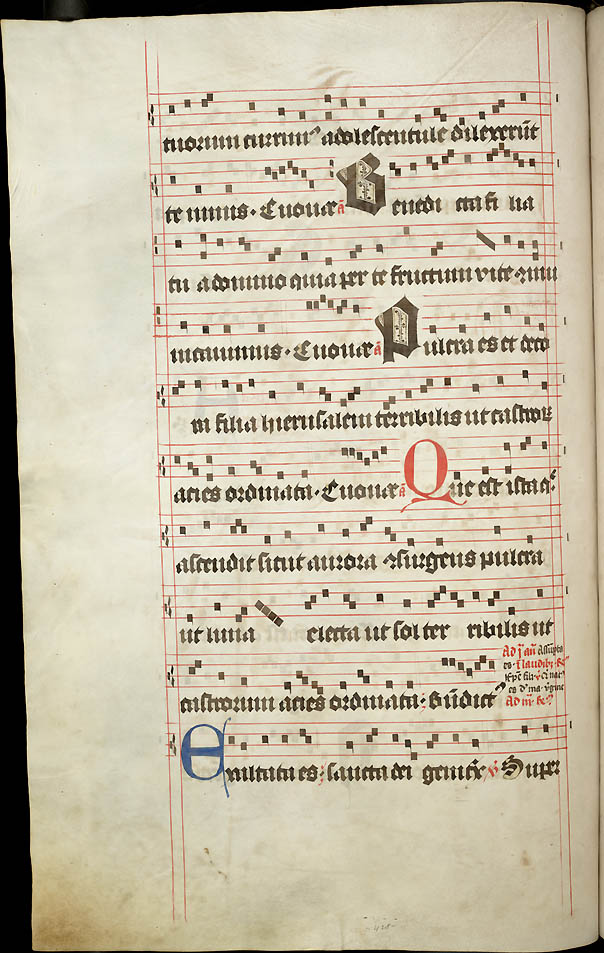 tuorum currim9 adolescentule dilexerūt
te nimis. Euouae ā Benedi cta fi lia
tu a domino quia per te fructum vite 9mu
nicauimus. Euouae ā Pulcra es et deco
ra filia hierusalem terribilis ut castror
acies ordinata. Euouae ā Que est ista q̄
ascendit sicut aurora 9surgens pulcra
ut luna electa ut sol ter ribilis ut
castrorum acies ordinata: Bn̄dict9
Exaltata es: sancta dei genitx. v Super